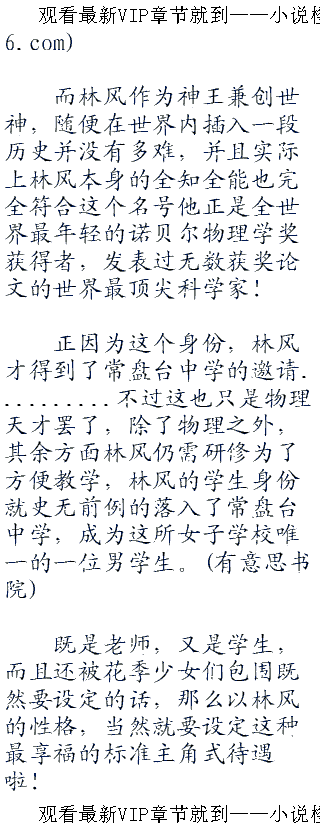 观看最新VIP章节就到——小说
6.com)
而林风作为神王兼创世
神，随便在世界内插入一段
历史并没有多难，并且实际
上林风本身的全知全能也完
全符合这个名号他正是全世
界最年轻的诺贝尔物理学奖
获得者，发表过无数获奖论
文的世界最顶尖科学家！
正因为这个身份，林风
才得到了常盘台中学的邀请.
.........不过这也只是物理
天才罢了，除了物理之外，
其余方面林风仍需研修为了
方便教学，林风的学生身份
就史无前例的落入了常盘台
中学，成为这所女子学校唯
一的一位男学生。(有意思书
院)
既是老师，又是学生，
而且还被花季少女们包围既
然要设定的话，那么以林风
的性格，当然就要设定这种
最享福的标准主角式待遇
啦！
观看最新VIP章节就到——小说